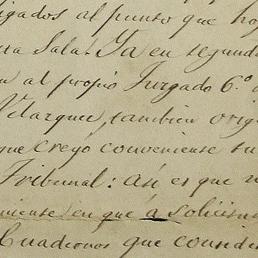 igados al punto que ho
ta Sala. Ya en segund
al propio Juzgado 6.º
Velazquez, tambien orig
que creyó conveniente tu
Tribunal: así es que
niense) en que á solicitu
Cuadernos que consid